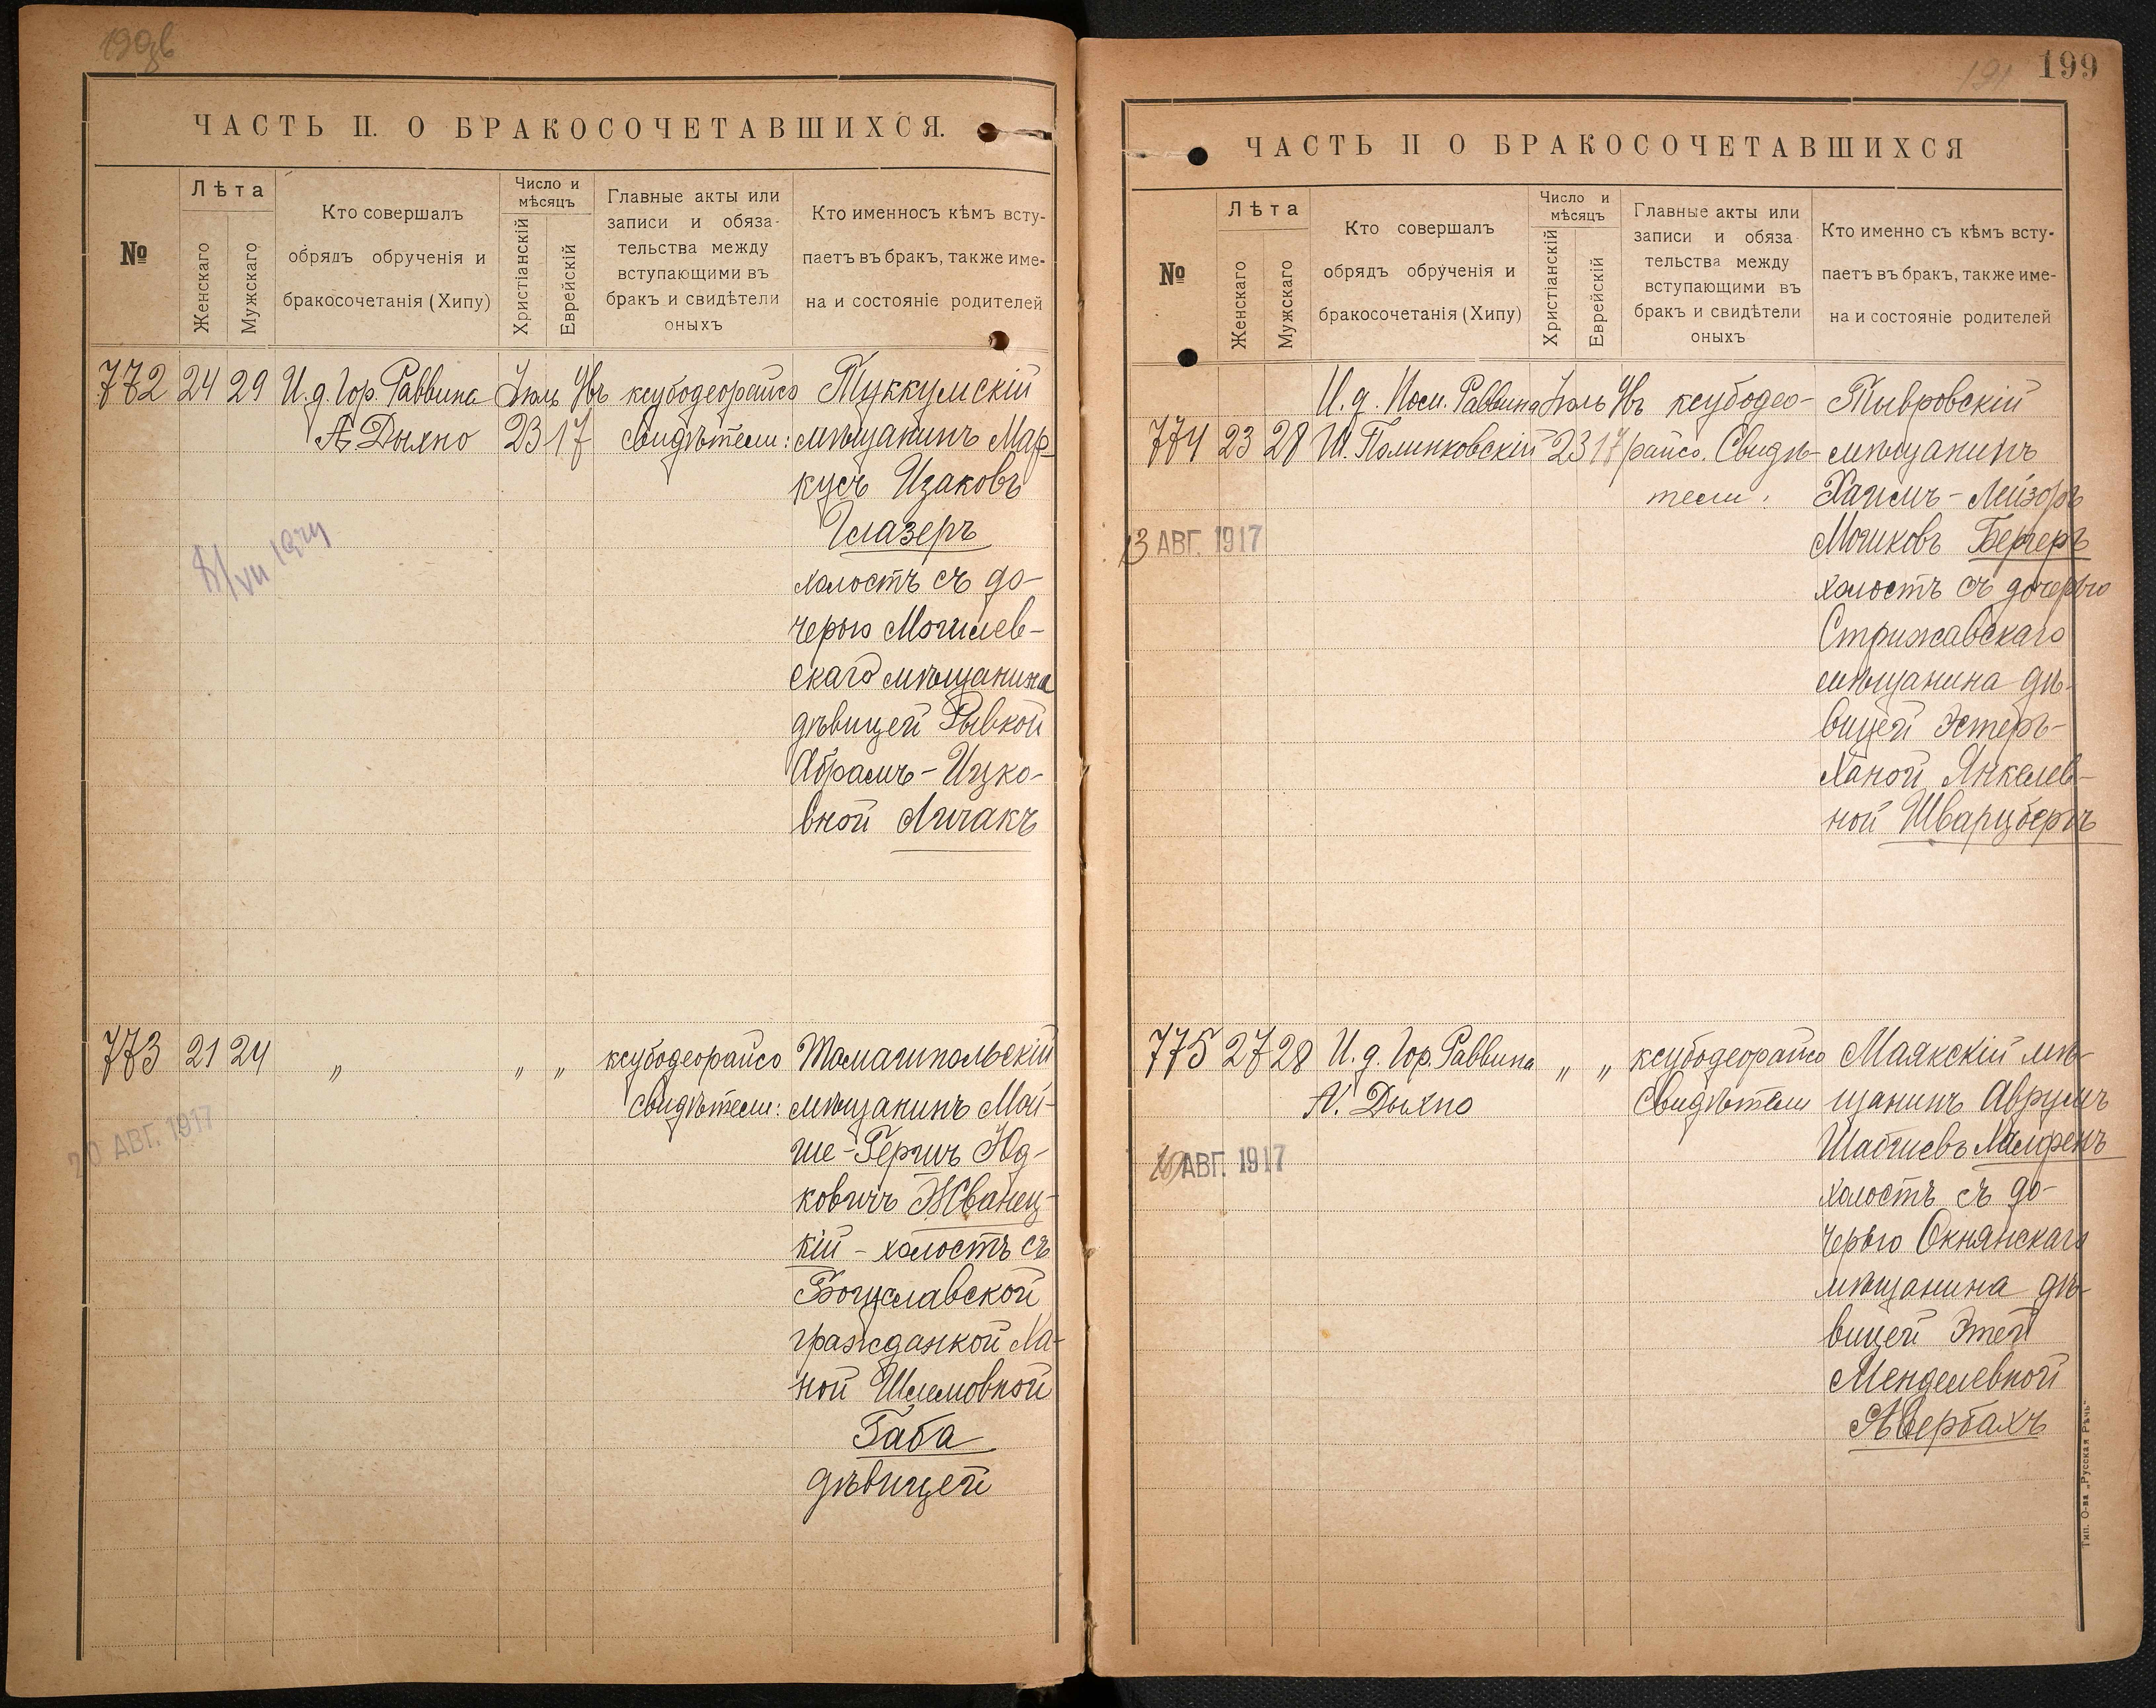 ЧАСТЬ II. О БРАКОСОЧЕТАВШИХСЯ.
№
Лѣта
Женскаго
Мужскаго
Кто совершалъ
обрядъ обрученія и
бракосочетанія (Хипу)
Число и
мѣсяцъ
Христіанскій
Еврейскій
Главные акты или
записи и обяза-
тельства между
вступающими въ
бракъ и свидѣтели
оныхъ
Кто именносъ кѣмъ всту-
паетъ въ бракъ, также име-
на и состояніе родителей
772 24 29
И. д. Гор. Раввина
А. Дыхно
Іюль
23
Ѳвъ
17
ксубодеорайсо
свидѣтели:
Туккумскій
мѣщанинъ Мар-
кусъ Ицаковъ
Глазеръ
холостъ съ до-
черью Могилев-
скаго мѣщанина
дѣвицей Рывкой
Абрамъ-Ицко-
вной Личакъ
773 21 24 „ „ „
20 АВГ. 1917
ксубодеорайсо
свидѣтели:
Томашпольскій
мѣщанинъ Мой-
ше-Гершъ Юд-
ковичъ Жванец-
кій - холостъ съ
Богуславской
гражданкой Ха-
ной Шлемовной
Габа
дѣвицей
199
191
ЧАСТЬ II О БРАКОСОЧЕТАВШИХСЯ
№
Лѣта
Женскаго
Мужскаго
Кто совершалъ
обрядъ обрученія и
бракосочетанія (Хипу)
Число и
мѣсяцъ
Христіанскій
Еврейскій
Главные акты или
записи и обяза-
тельства между
вступающими въ
бракъ и свидѣтели
оныхъ
Кто именно съ кѣмъ всту-
паетъ въ бракъ, также име-
на и состояніе родителей
774 23 28
И. д. Пом. Раввина
Ш. Полинковскій
Іюль
23
Ѳвъ
17
13 АВГ. 1917
ксубодео-
райсо. Свидѣ-
тели:
Тывровскій
мѣщанинъ
Хаимъ-Лейзоръ
Мошковъ Бергеръ
холостъ съ дочерью
Стрижавскаго
мѣщанина дѣ-
вицей Эстеръ-
Ханой Янкелев-
ной Шварцбергъ
775 27 28
И. д. Гор. Раввина
А. Дыхно
„ „
АВГ. 1917
ксубодеорайсо
Свидѣтели
Маякскій мѣ-
щанинъ Аврумъ
Шабсиевъ
холостъ съ до-
черью Окнянскаго
мѣщанина дѣ-
вицей Этей
Менделевной
Авербахъ
Тип. О-ва „Русская Рѣчь"